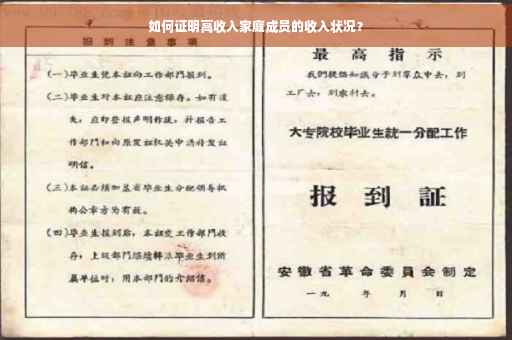 如何证明高收入家庭成员的收入状况？
报到注意事项
(一)毕业生凭本证向工作部门报到。
(二)毕业生对本证应注意保存。如有遗
失，应即登报声明作废，并报告工
作部门和向原发证机关申请补发证
明信。
(三)本证必须加盖省毕业生分配领导机
构公章方为有效。
(四)毕业生报到后，本证交工作部门收
存；上级部门继续转派毕业生到所
属单位时，用本部门的介绍信。
最高指示
我们提倡知识分子到群众中去，到
工厂去，到农村去。
大专院校毕业生統一分配工作
报到証
安徽省革命委員会制定
一九 年 月 日